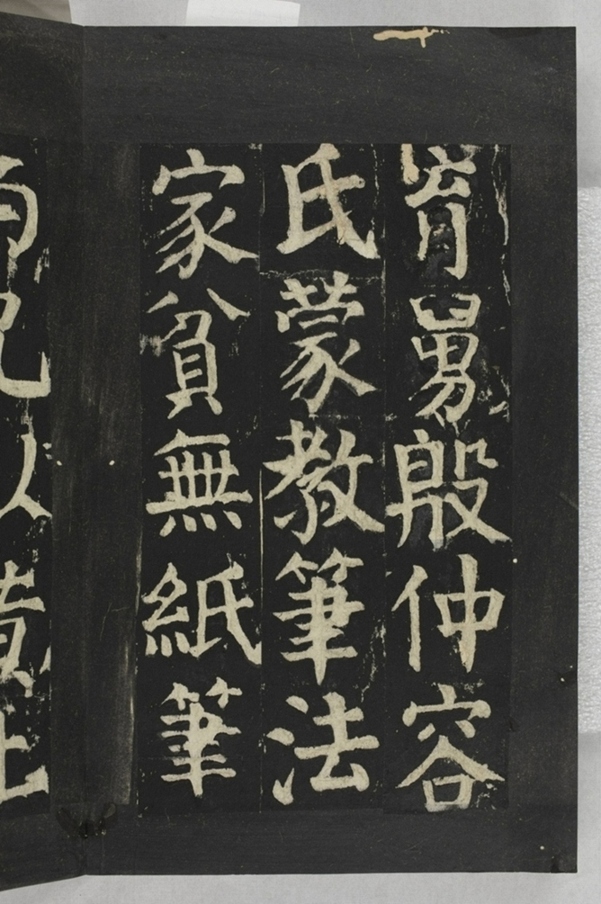 育舅殷仲容
氏蒙教筆法
家貧無紙筆